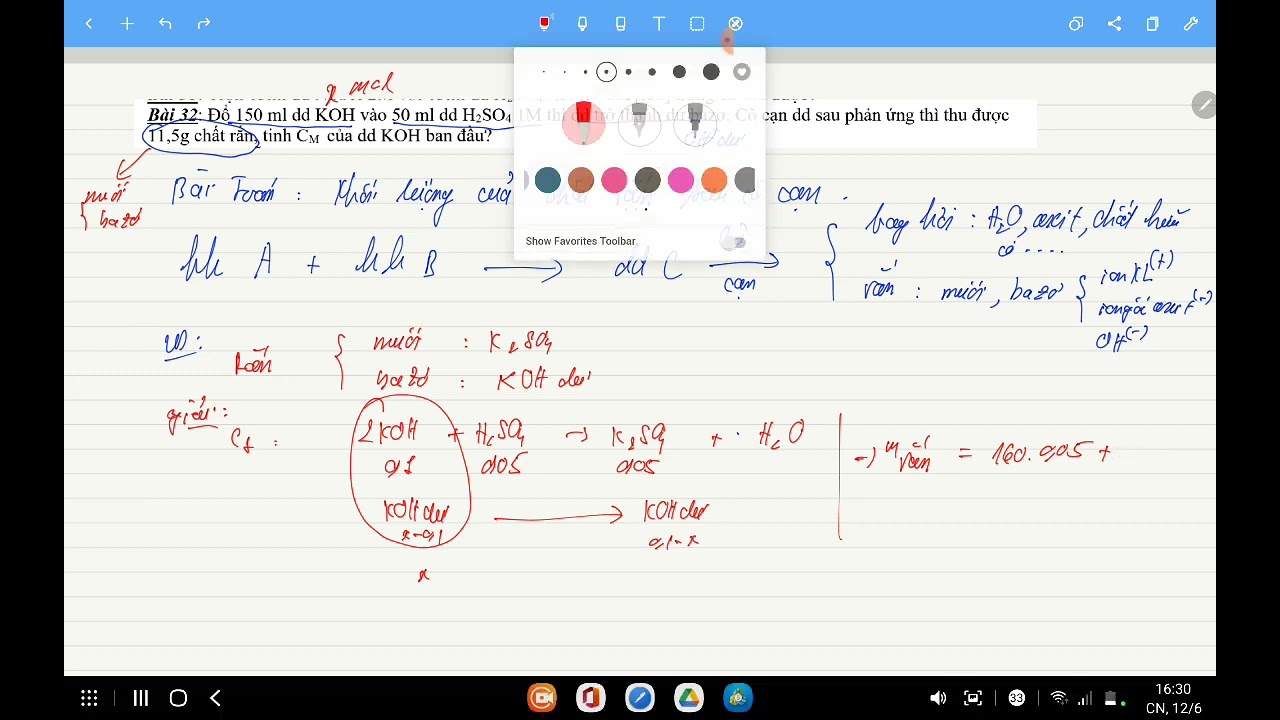 x mol
Bài 32: Đổ 150 ml dd KOH vào 50 ml dd H₂SO₄ 1M thì dd trở thành dư bazơ. Cô cạn dd sau phản ứng thì thu được
11,5g chất rắn, tính CM của dd KOH ban đầu?
muối
bazơ
Bài Toán : Khối lượng của cạn .
hh A + hh B → dd C cạn →
bay hơi : H₂O, axit, chất hữu
cơ ....
rắn : muối, bazơ
ion KL (+)
ion gốc axit (-)
OH (-)
VD:
Rắn
muối : K₂SO₄
bazơ : KOH dư
giải:
2KOH + H₂SO₄ → K₂SO₄ + H₂O
0,1 0,05 0,05
KOH dư → KOH dư
x-0,1 0,1-x
x
→ m rắn = 160.0,05 +
Show Favorites Toolbar
33
16:30
CN, 12/6